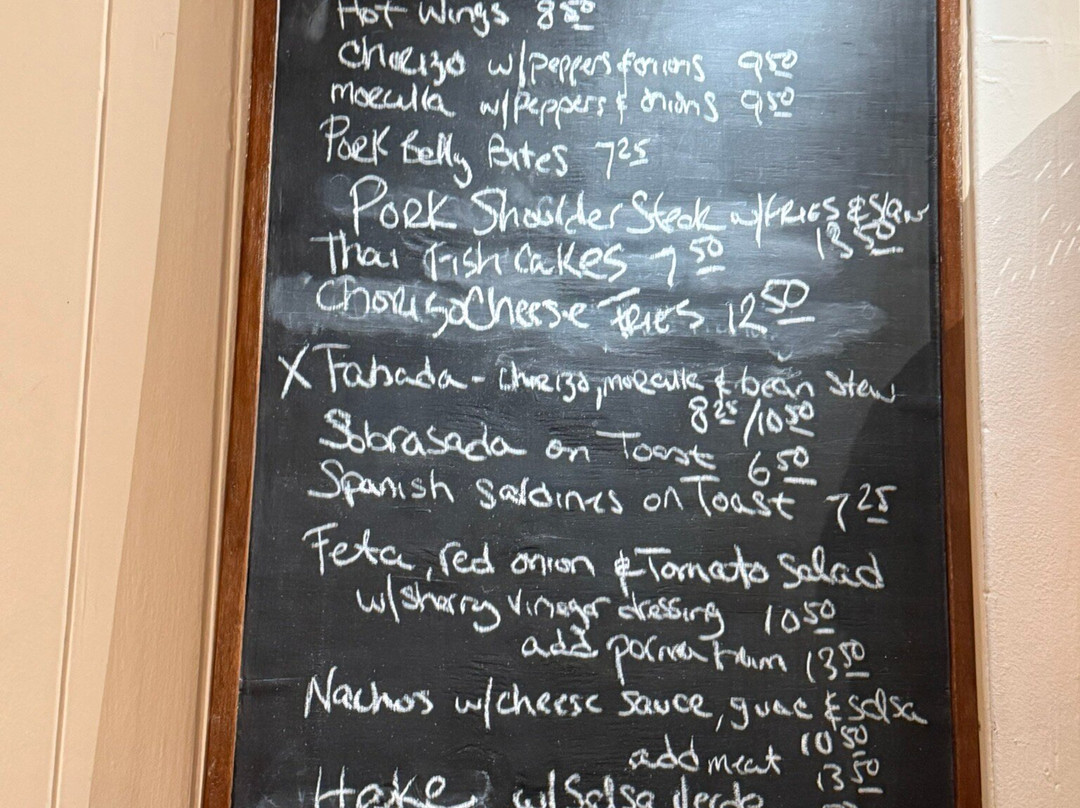 Hot Wings 8 50
Chorizo w/peppers & onions 9 50
Morcilla w/peppers & onions 9 50
Pork Belly Bites 7 25
Pork Shoulder Steak w/FRIES & Slaw
13 50
Thai Fish Cakes 7 50
Chorizo Cheese FRIES 12 50
X Fabada - chorizo, morcilla & bean stew
8 25 / 10 50
Sobrasada on Toast 6 50
Spanish Sardines on Toast 7 25
Feta, red onion & Tomato Salad
w/sherry vinegar dressing 10 50
add parma ham 13 50
Nachos w/cheese sauce, guac & salsa
10 50
add meat 13 50
Hake w/Salsa Verde